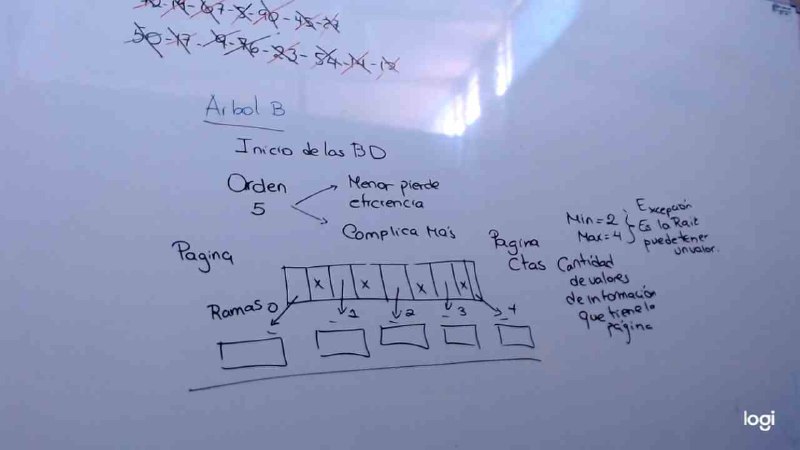 107-3-90-43-21
50-17-9-76-23-54-14-12
Arbol B
Inicio de las BD
Orden
5
Menor pierde
eficiencia
Complica Más
Pagina
x x x x
Ramas 0 1 2 3 4
Pagina
Ctas Cantidad
de valores
de información
que tiene la
página
Min=2
Max=4
Excepción
Es la Raiz
puede tener
un valor.
logi